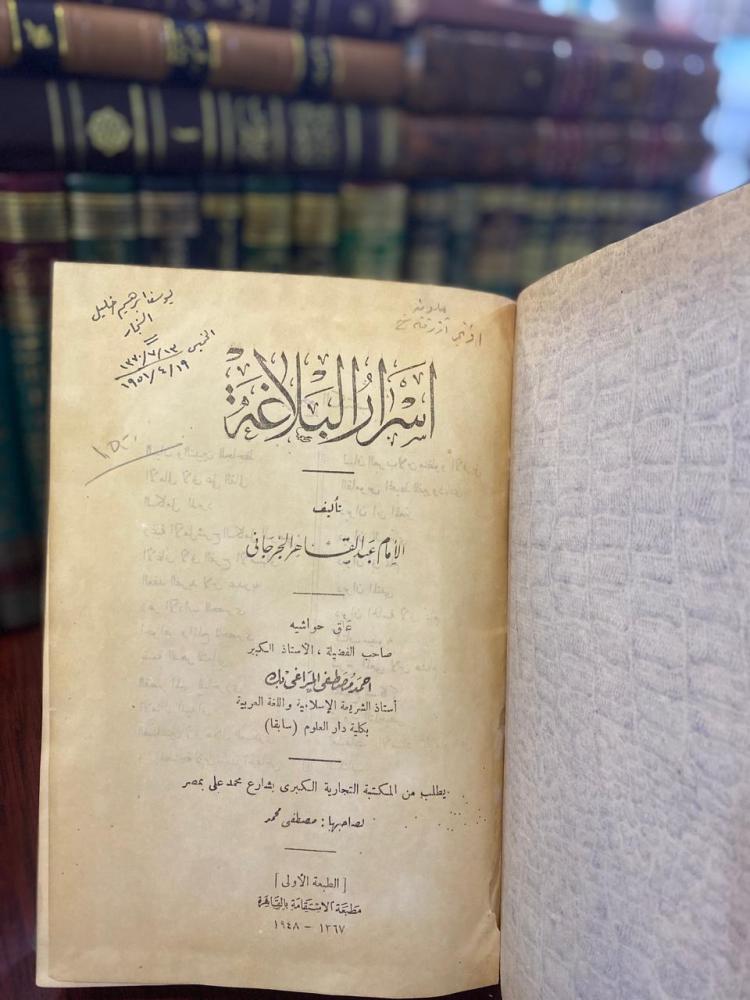 يوسف ابرهيم خليل
النجار
الخميس ١٣/٧/١٣٧٠
١٩/٤/١٩٥١
اسرار البلاغة
تأليف
الإمام عبد القاهر الجرجاني
علق حواشيه
صاحب الفضيلة ، الأستاذ الكبير
احمد مصطفى المراغى بك
أستاذ الشريعة الإسلامية واللغة العربية
بكلية دار العلوم (سابقا)
يطلب من المكتبة التجارية الكبرى بشارع محمد على بمصر
لصاحبها : مصطفى محمد
[ الطبعة الأولى ]
مطبعة الاستقامة بالقاهرة
١٣٦٧ - ١٩٤٨